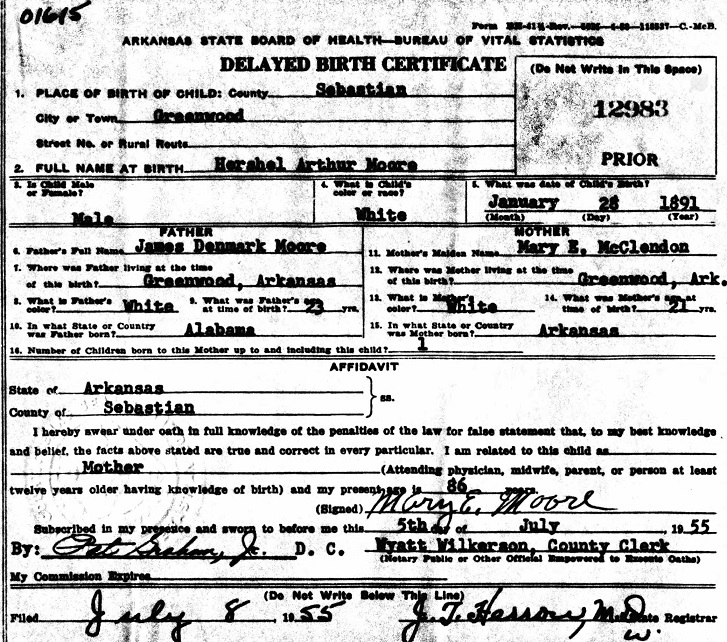 01615
ARKANSAS STATE BOARD OF HEALTH—BUREAU OF VITAL STATISTICS
DELAYED BIRTH CERTIFICATE
(Do Not Write in This Space)
12983
PRIOR
1. PLACE OF BIRTH OF CHILD: County Sebastian
City or Town Greenwood
Street No. or Rural Route
2. FULL NAME AT BIRTH Hershel Arthur Moore
3. Is Child Male or Female? Male
4. What is Child's color or race? White
5. What was date of Child's Birth?
January 28 1891
(Month) (Day) (Year)
FATHER
6. Father's Full Name James Denmark Moore
7. Where was Father living at the time
of this birth? Greenwood, Arkansas
8. What is Father's color? White 9. What was Father's age at time of birth? 23 yrs.
10. In what State or Country was Father born? Alabama
MOTHER
11. Mother's Maiden Name Mary E. McClendon
12. Where was Mother living at the time
of this birth? Greenwood, Ark.
13. What is Mother's color? White 14. What was Mother's age at time of birth? 21 yrs.
15. In what State or Country was Mother born? Arkansas
16. Number of Children born to this Mother up to and including this child? 1
AFFIDAVIT
State of Arkansas
County of Sebastian
ss.
I hereby swear under oath in full knowledge of the penalties of the law for false statement that, to my best knowledge
and belief, the facts above stated are true and correct in every particular. I am related to this child as
Mother (Attending physician, midwife, parent, or person at least
twelve years older having knowledge of birth) and my present age is 86 years.
(Signed) Mary E. Moore
Subscribed in my presence and sworn to before me this 5th day of July, 1955
By: Pat Graham, Jr. D. C. Wyatt Wilkerson, County Clerk
(Notary Public or Other Official Empowered to Execute Oaths)
My Commission Expires
(Do Not Write Below This Line)
Filed July 8, 1955 J. T. Herron, M.D. State Registrar